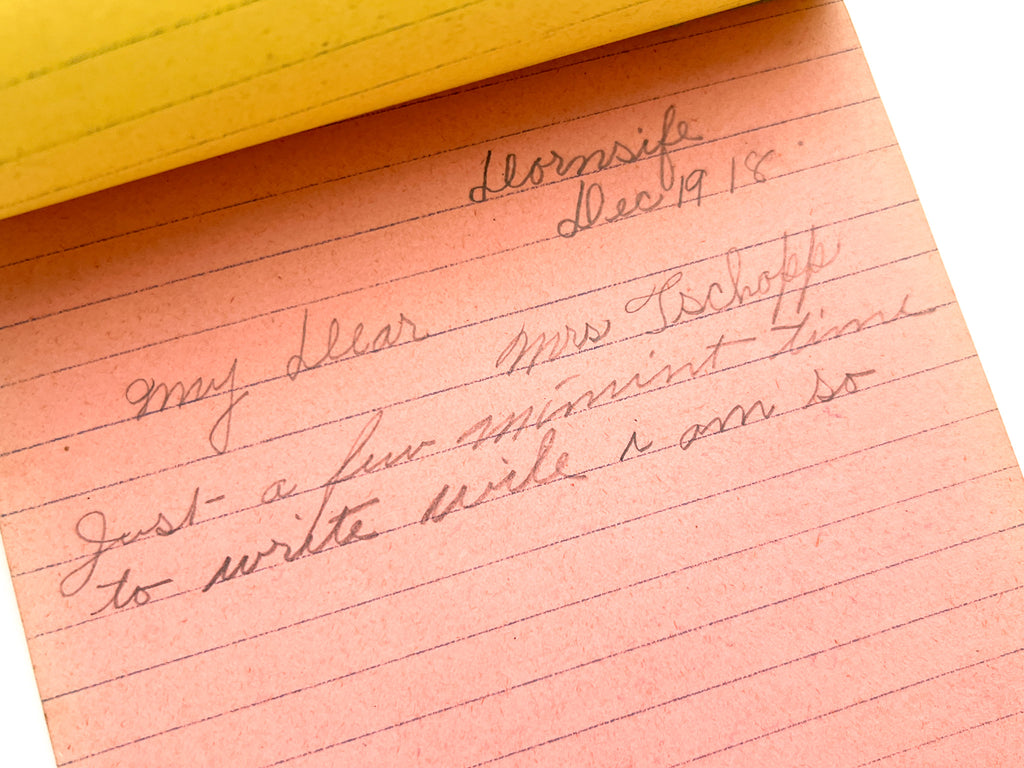 Dornsife
Dec 19 18
My Dear Mrs Tschopp
Just a few minint time
to write wile i am so